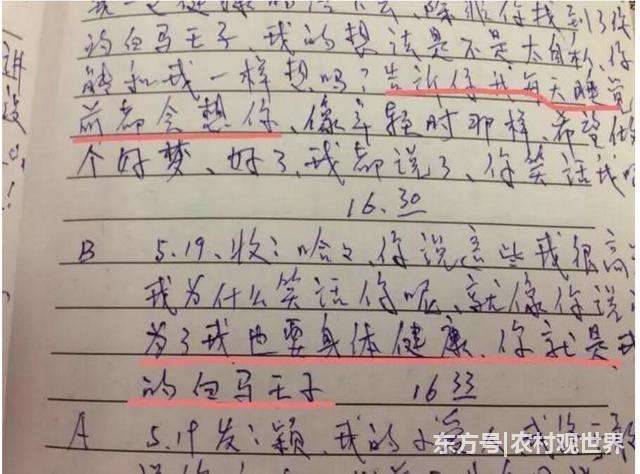 我一定健康的活下去、除非你找到了你
的白马王子、我的想法是不是太自私、你
能和我一样想吗？告诉你我每天睡觉
前都会想你、像年轻时那样、希望做
个好梦、好了、我都说了、你笑话我吧
16.30
B 5.19、收：哈哈、你说这些我很高
我为什么笑话你呢、就像你说
为了我也要身体健康、你就是我
的白马王子 16 33
A 5.19发：颖、我的
东方号|农村观世界
进